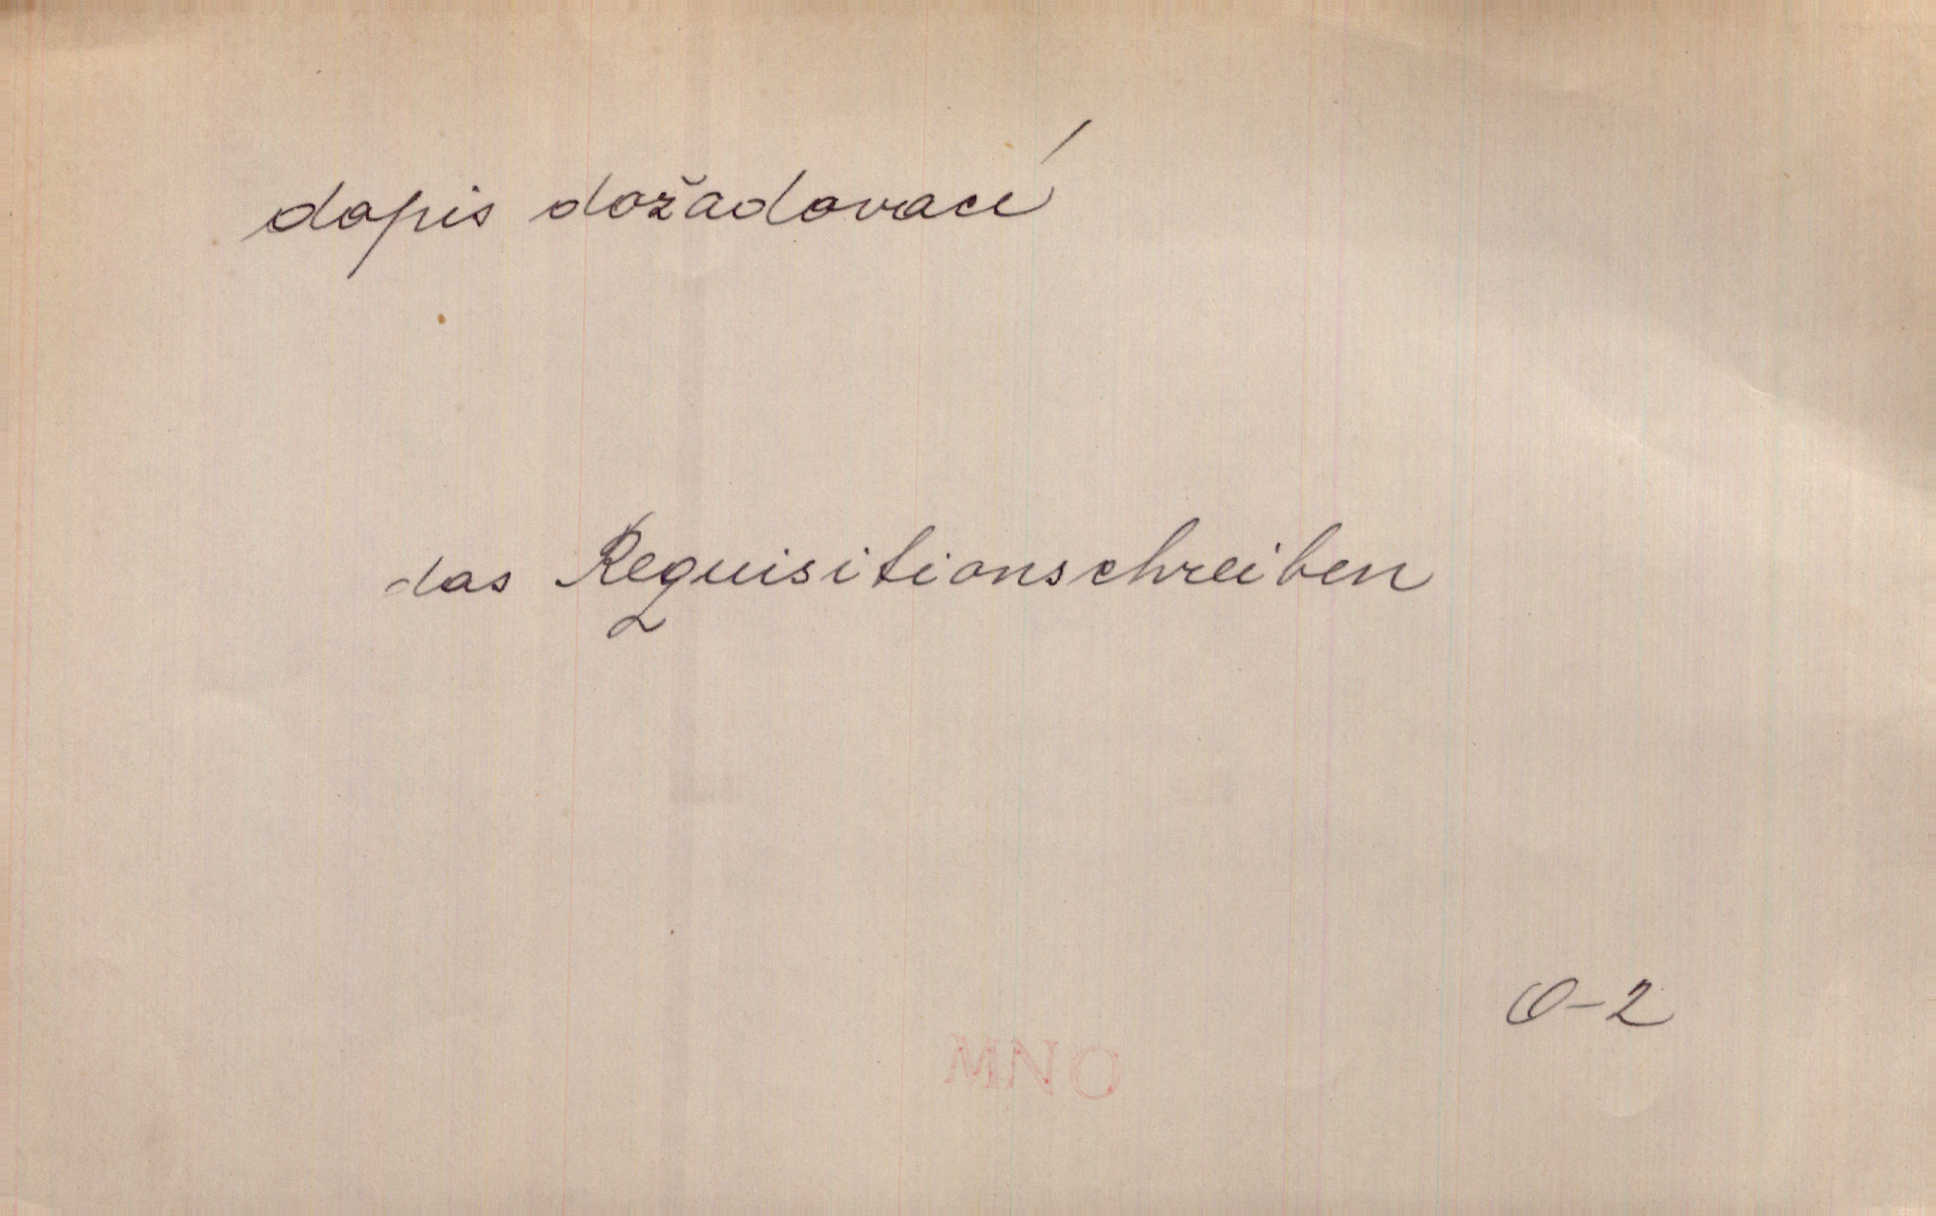 dopis dožadovací
das Requisitionschreiben
O-2
MNO